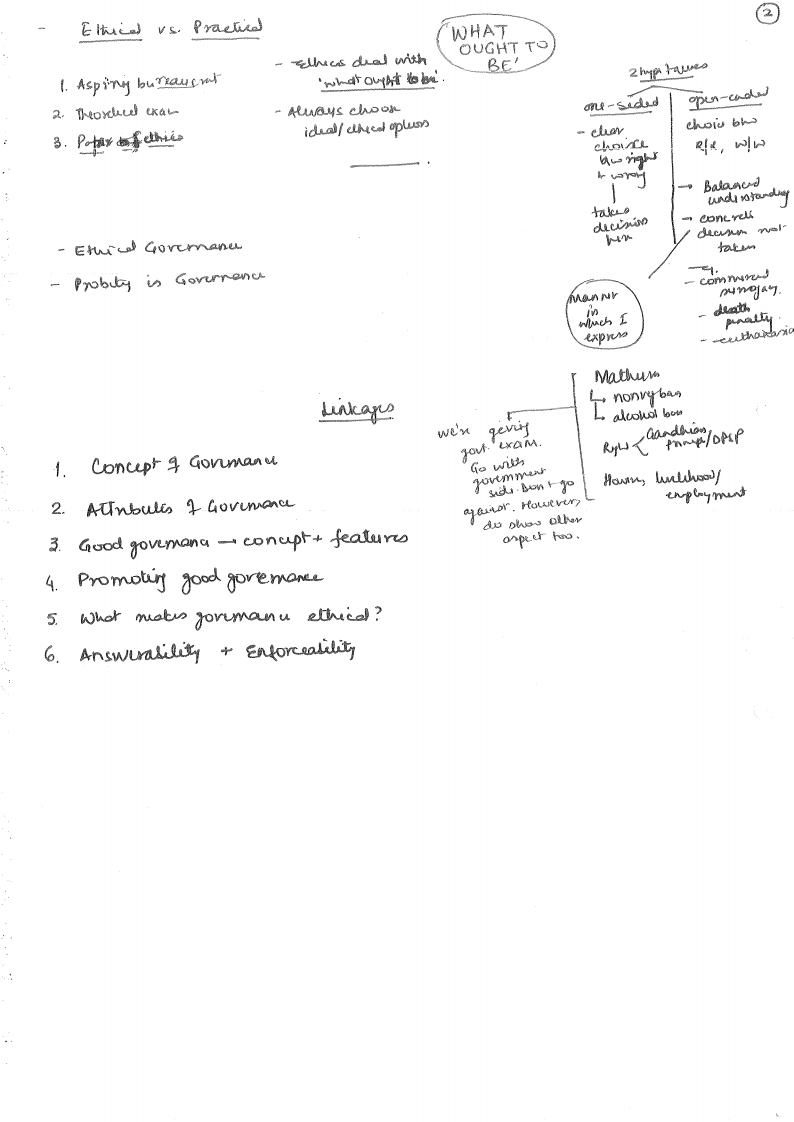 2
- Ethical vs. Practical
1. Aspiring bureaucrat
2. Theoretical exam
3. Paper of ethics
- Ethics deal with
'what ought to be'.
- Always choose
ideal/ethical options
'WHAT
OUGHT TO
BE'
2 hypi
one-sided
- clear
choice
b/w right
& wrong
takes
decision
open-ended
choice b/w
R/R, W/W
→ Balanced
understanding
→ concrete
decision not
taken
eg.
- commercial
surrogacy.
- death
penalty
- euthanasia
manner
in
which I
express
- Ethical Governance
- Probity in Governance
Mathura
↳ nonveg ban
↳ alcohol ban
Right < Gandhian
/DPSP
livelihood/
employment
we're giving
govt. exam.
Go with
government
side. Don't go
against. However,
do show other
aspect too.
Linkages
1. Concept of Governance
2. Attributes of Governance
3. Good governance → concept + features
4. Promoting good governance
5. What makes governance ethical?
6. Answerability + Enforceability